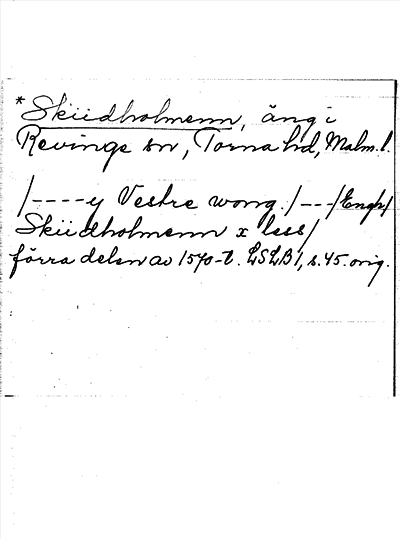 *Skiidholmenn, äng i
Revinge sn, Torna hd, Malm. l.
/----y Vestre wong. /---/Engh/
Skiidholmenn x less/
förra delen av 1570-t. LSLB1, s. 45. orig.